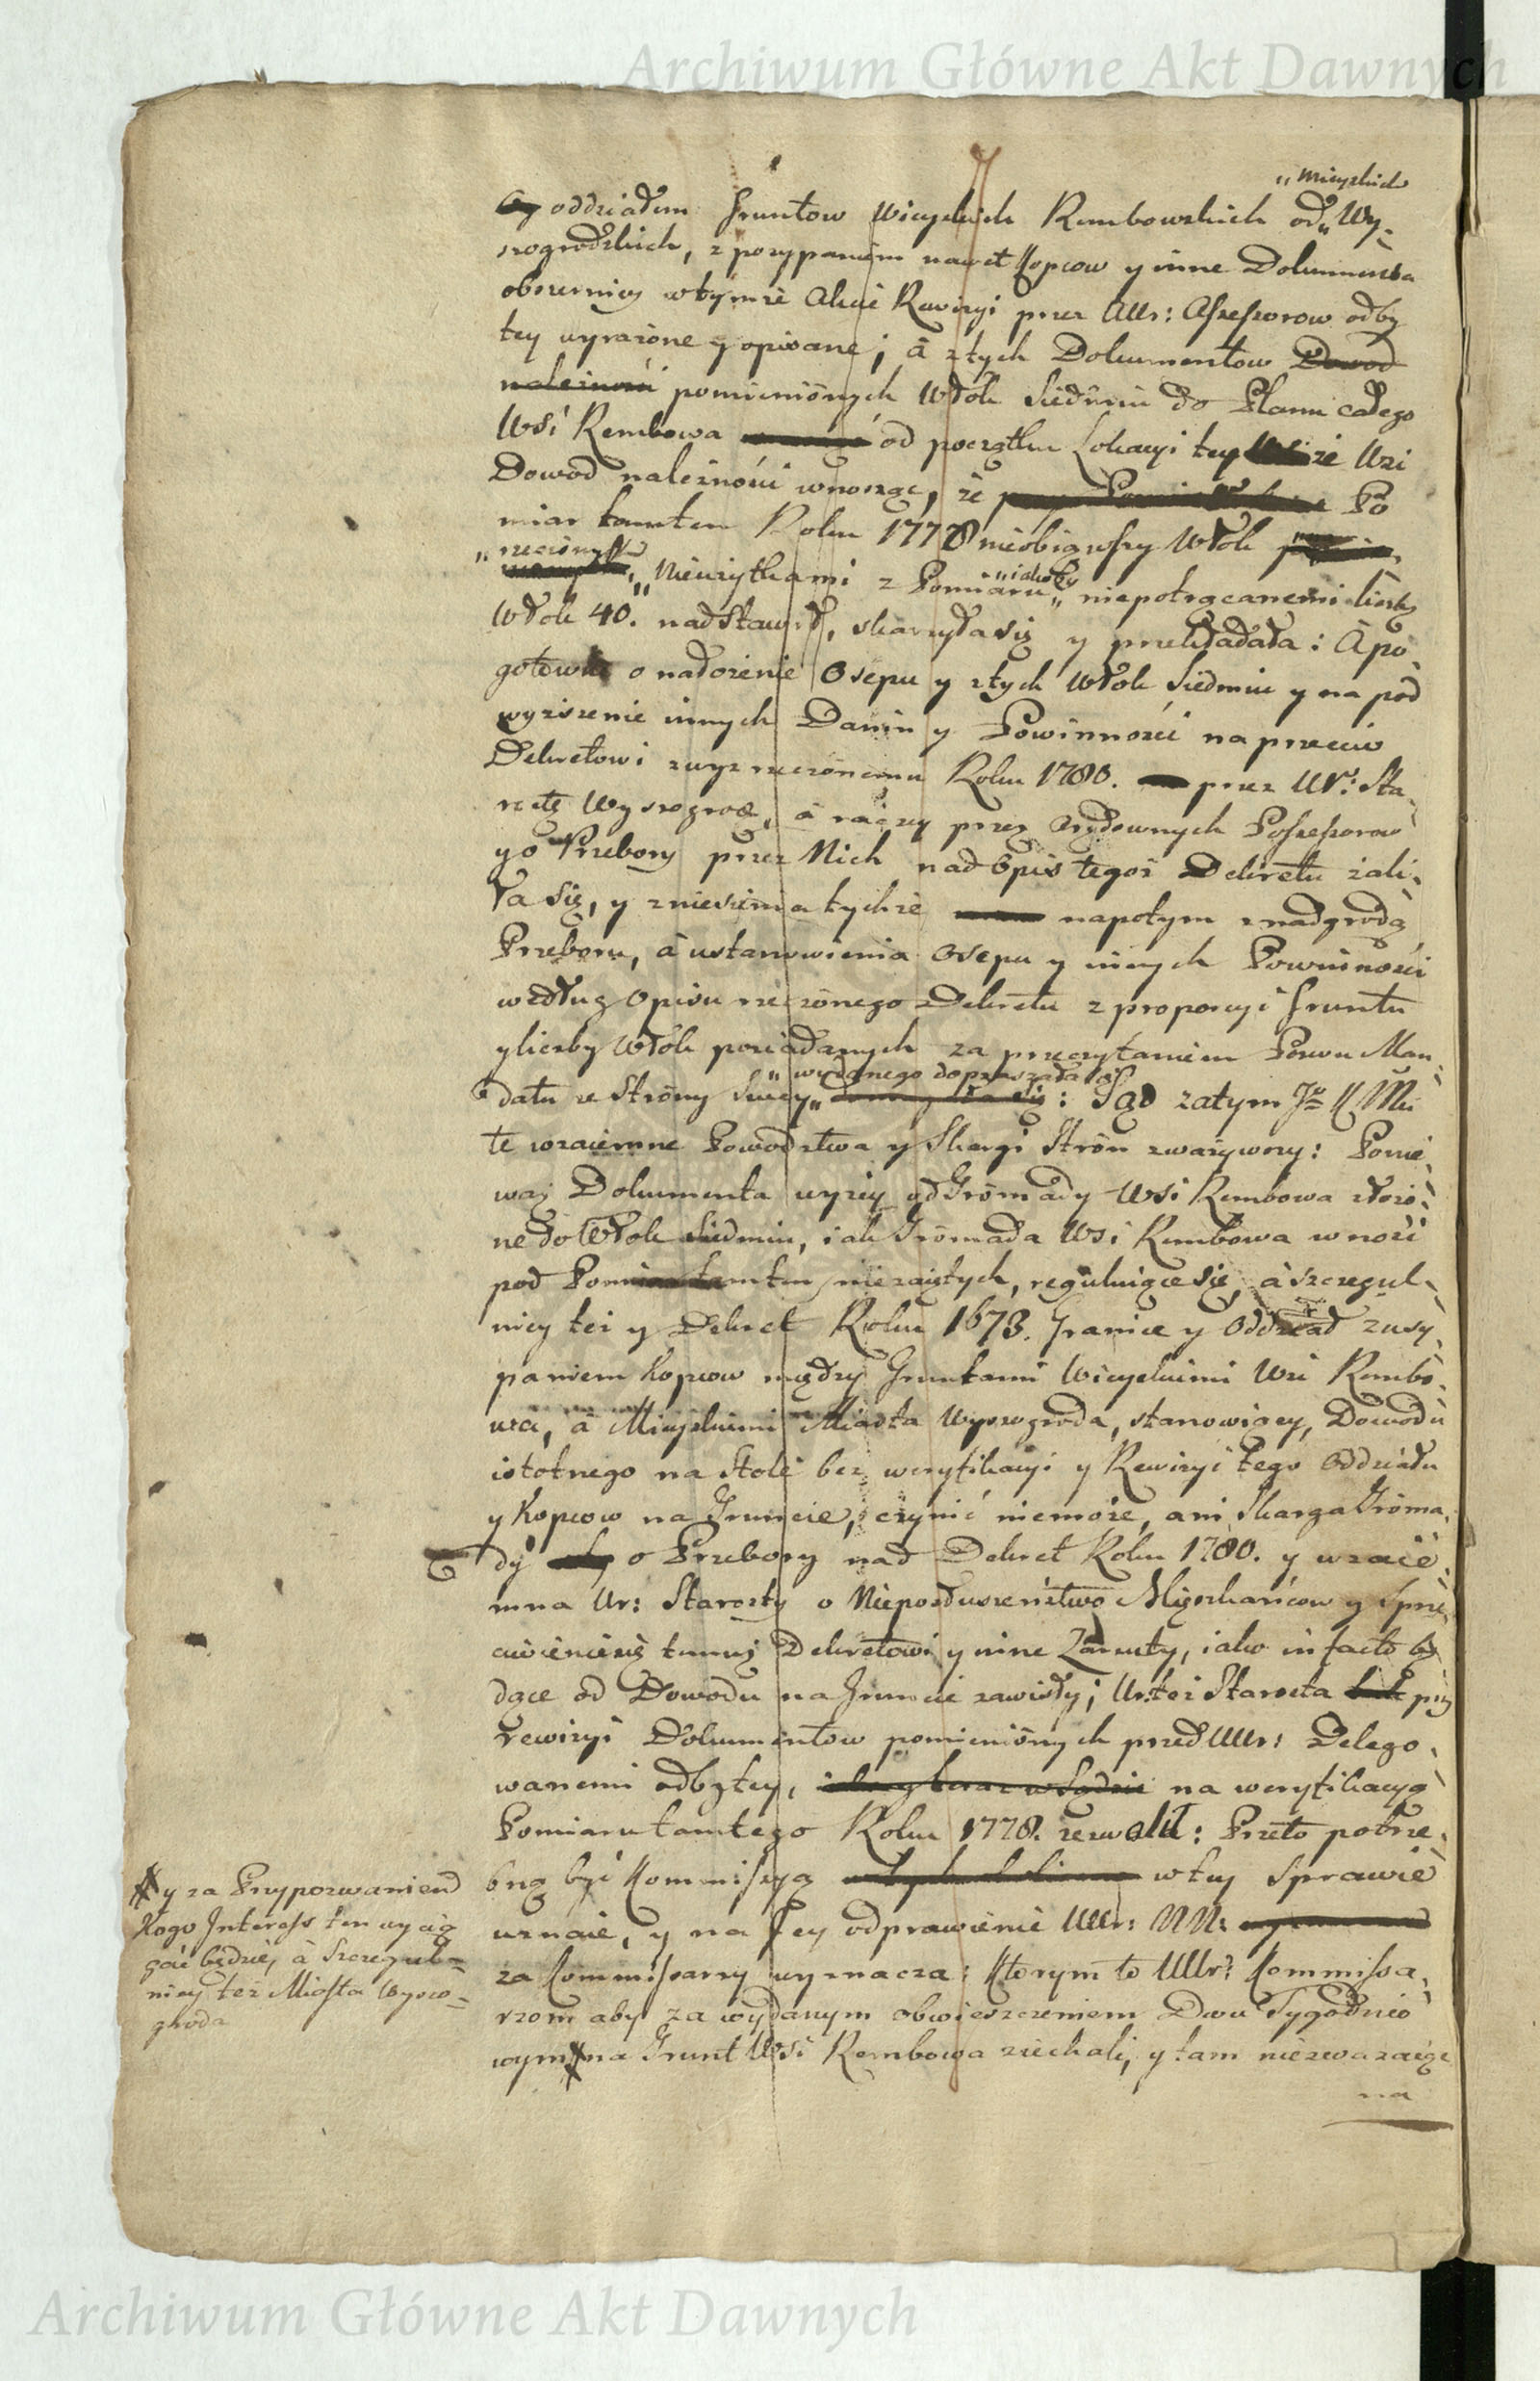 Archiwum Główne Akt Dawnych
„Mieyskich
oddziałem Gruntow Wieyskich Rembowskich od„ Wy-
szogrodzkich, z posypaniem nawet Kopcow y inne Dokumenta
obszerniey w tymże Akcie Rewizyi przez Ur: Assessorow odby
tey wyrażone y opisane; à z tych Dokumentow Dowod
należnosci pomienionych Włok Siedmiu do Planu całego
Wsi Rembowa od początku Lokacyi tey że Wsi
Dowod należności wnosząc, że Po
miar tamten Roku 1778 nieobiąwszy Włok
„rzeczonych
„ Nieużytkami z Pomiaru „iakoby„ niepotrącanemi liczbę
Włok 40. nadstawił, skarżyła się y przekładała: À po
gotowiu o nałożenie Osepu y z tych Włok Siedmiu y na pod
wyższenie innych Danin y Powinności na przeciw
Dekretowi zwyż rzeczonemu Roku 1780. przez Ur: Sta
rostę Wyszogrod, à raczey przez Possessorow
go Przebory przez Nich nad Opis tegoż Dekretu żali-
ła się, y zniesienia tychże napotym z nadgrodą
Przeboru, à ustanowienia Osepu y innych Powinności
według Opisu rzeczonego Dekretu z proporcyi Gruntu
y liczby Włok posiadanych za przeczytaniem Pozwu Man-
„wydanego dopraszała się
datu ze Strony Swey„ : Sąd zatym J K Mci
te wzaiemne Powodztwa y Skargi Stron zważywszy: Ponie
waż Dokumenta wyżey od Gromady Wsi Rembowa złożo-
ne do Włok Siedmiu, iak Gromada Wsi Rembowa wnosi
pod Pomiar tamten niezaiętych, reguluiące się, à szczegul-
niey też y Dekret Roku 1673. Granice y Oddział z usy-
paniem Kopcow między Gruntami Wieyskiemi Wsi Rembo-
wa, à Mieyskiemi Miasta Wyszogroda, stanowiący, Dowodu
istotnego na Stole bez weryfikacyi y Rewizyi tego Oddziału
y Kopcow na Gruncie, czynić niemoże, ani Skarga Groma-
dy o Przebory nad Dekret Roku 1780. y wzaie-
mna Ur: Starosty o Nieposłuszeństwo Mieszkańcow y Sprze-
ciwienie się temuż Dekretowi y inne Zarzuty, iako in facto bę
dące od Dowodu na Gruncie zawisły; Ur: też Starosta przy
rewizyi Dokumentow pomienionych przed UUr: Delego-
wanemi odbytey, na weryfikacyą
Pomiaru tamtego Roku 1778. zezwolił: Przeto potrze-
bną być Kommissyą w tey Sprawie
uznaie, y na Jey odprawienie UUr: NN:
za Kommissarzy wyznacza: Ktorym to UUr: Kommissa-
rzom aby za wydanym obwieszczeniem Dwu Tygodnio
wym na Grunt Wsi Rembowa ziechali, y tam niezważaiąc
na
y za Przypozwaniem
Kogo Interess ten wycią
gać będzie, à Szczegul-
niey też Miasta Wyszo-
groda
Archiwum Główne Akt Dawnych